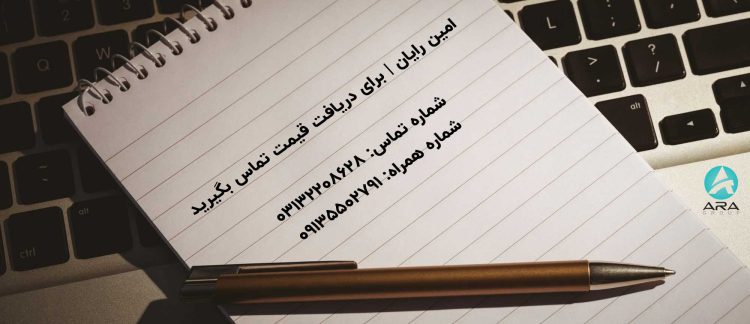 امین رایان | برای دریافت قیمت تماس بگیرید
شماره تماس: ۰۳۱۳۲۲۰۸۶۲۸
شماره همراه: ۰۹۱۳۵۵۰۲۷۹۱
ARA
GROUP
alt
ctrl
alt
L
?